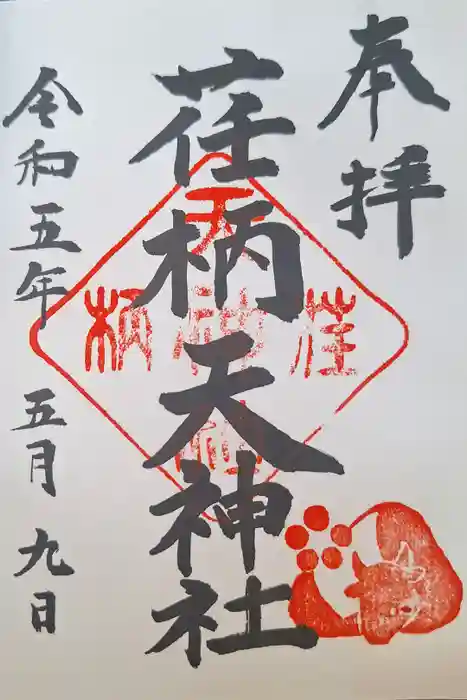 奉拝
荏柄天神社
荏柄
天神社
令和五年 五月 九日